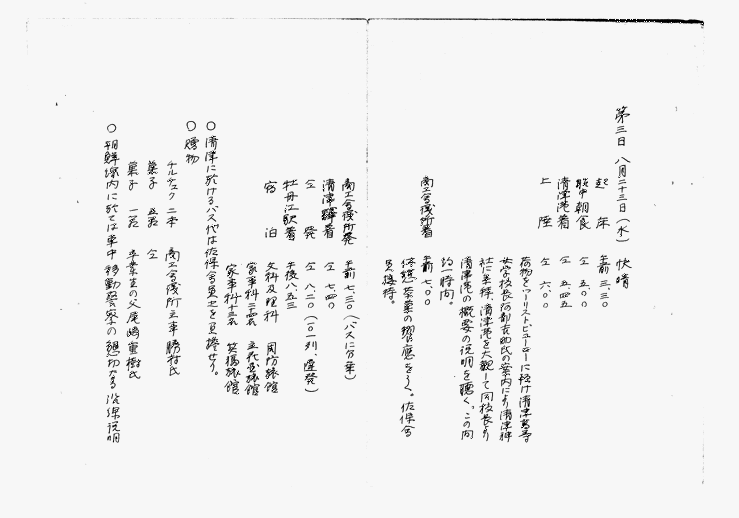 第三日 八月二十三日(水) 快晴
起床 午前 三.三〇
船中朝食 仝 五.〇〇
清津港着 仝 五.四五
上陸 仝 六.〇〇
荷物をツーリスト、ビューローに預け清津高等
女学校長阿部吉助氏の案内により清津神
社に参拝、清津港を大観して同校長より
清津港の概要の説明を聴く、この間
約一時間。
商工会議所着 午前 七.〇〇
休憩 茶菓の饗応をうく。佐保会
員接待。
商工会議所発 午前 七.三〇(バスに分乗)
清津駅着 仝 七.四〇
仝 発 仝 八.二〇(一〇一列、遅発)
牡丹江駅着 午後八.五三
宿泊 文科及理科 周防旅館
家事科二部 旅館
家事科十三名 旅館
〇 清津に於けるバス代は佐保会員之を負担せり。
〇 贈物
二本 商工会議所立幸勝右氏
菓子 五 仝
菓子 一 卒業生の父尾崎重樹氏
〇 朝鮮線内に於ては車中移動警察の懇切なる沿線説明